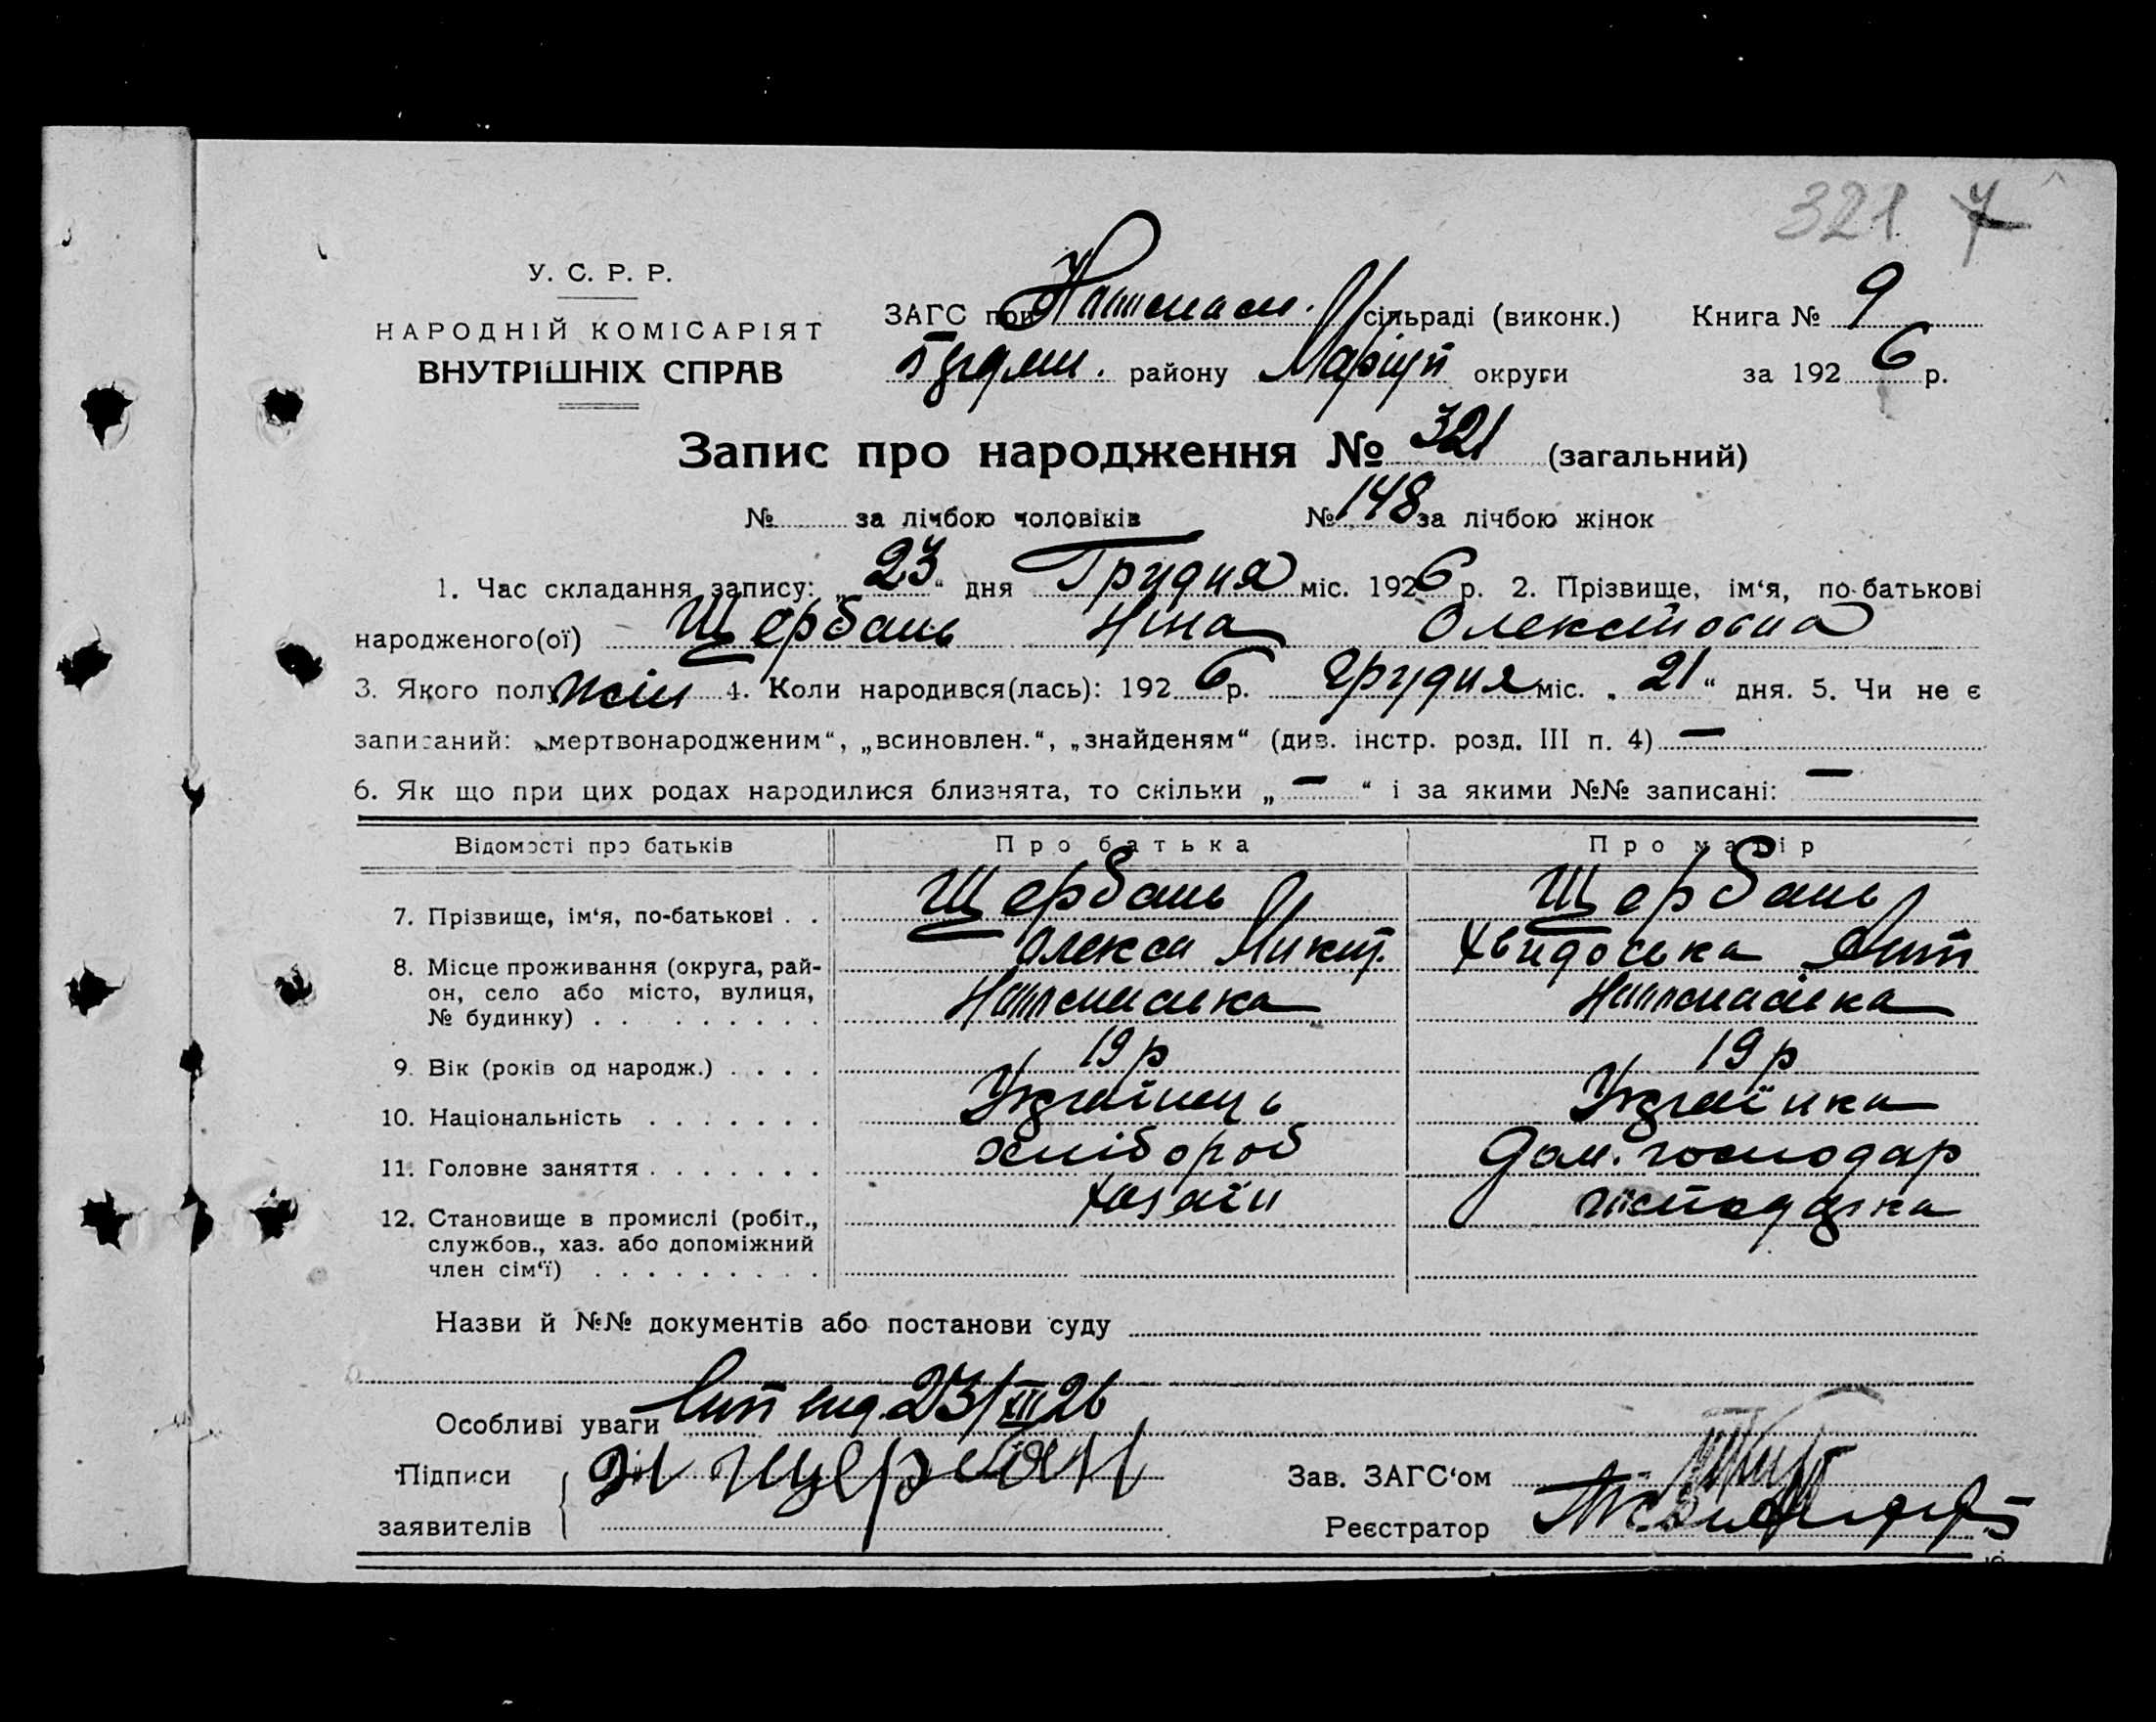 321 7
У. С. Р. Р.
НАРОДНІЙ КОМІСАРІЯТ
ВНУТРІШНІХ СПРАВ
ЗАГС при сільраді (виконк.) Книга № 9
району Маріуп округи за 1926 р.
Запис про народження № 321 (загальний)
№ за лічбою чоловіків № 148 за лічбою жінок
1. Час складання запису: „23“ дня Грудня міс. 1926 р. 2. Прізвище, ім‘я, по-батькові
народженого(ої) Щербань Ніна Олексіовна
3. Якого полу жін 4. Коли народився(лась): 1926 р. Грудня міс. „21“ дня. 5. Чи не є
записаний: „мертвонародженим“, „всиновлен.“, „знайденям“ (див. інстр. розд. III п. 4) —
6. Як що при цих родах народилися близнята, то скільки „—“ і за якими №№ записані: —
Відомості про батьків Про батька Про матір
7. Прізвище, ім‘я, по-батькові . . Щербань Щербань
Олекса Микит. Хвидоська
8. Місце проживання (округа, рай-
он, село або місто, вулиця,
№ будинку) . . . . . . . . .
9. Вік (років од народж.) . . . . 19 р 19 р
10. Національність . . . . . . . Українець Українка
11. Головне заняття . . . . . . . хлібороб Дом. господар
12. Становище в промислі (робіт., хазяїн
службов., хаз. або допоміжний
член сім‘ї) . . . . . . . . .
Назви й №№ документів або постанови суду
Особливі уваги 23/XII 26
Підписи щербан Зав. ЗАГС‘ом
заявителів Реєстратор